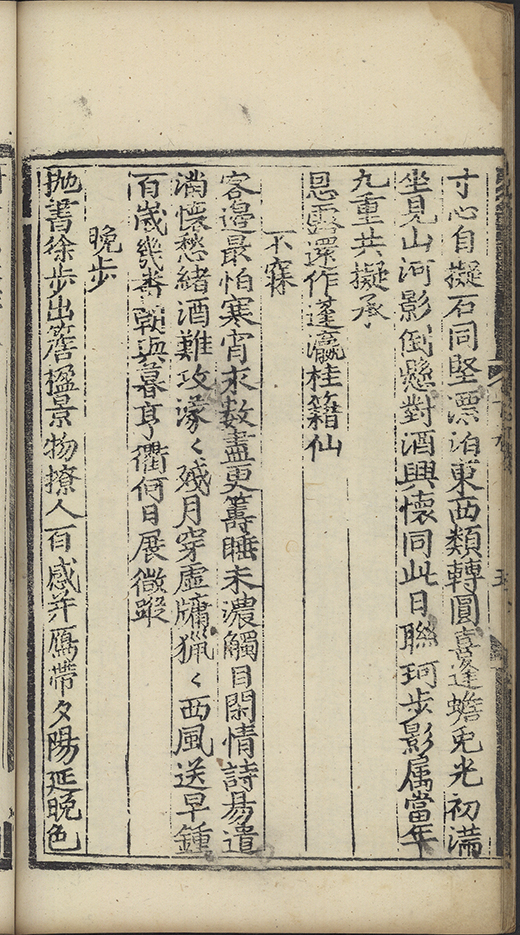 寸心自擬石同堅漂泊東西類轉圓喜逢蟾兎光初滿
坐見山河影倒懸對酒興懷同此日聯珂步影属當年
九重共擬承
恩露還作蓬瀛桂籍仙
不寐
客邊最怕寒宵永数盡更籌睡未濃觸目閑情詩易遣
滿懷愁緒酒難攻濛々殘月穿虛牖猟々西風送早鍾
百歲幾番朝與暮亨衢何日展微蹤
晚步
抛書徐步出簷楹景物撩人百感并鴈帶夕陽延晚色